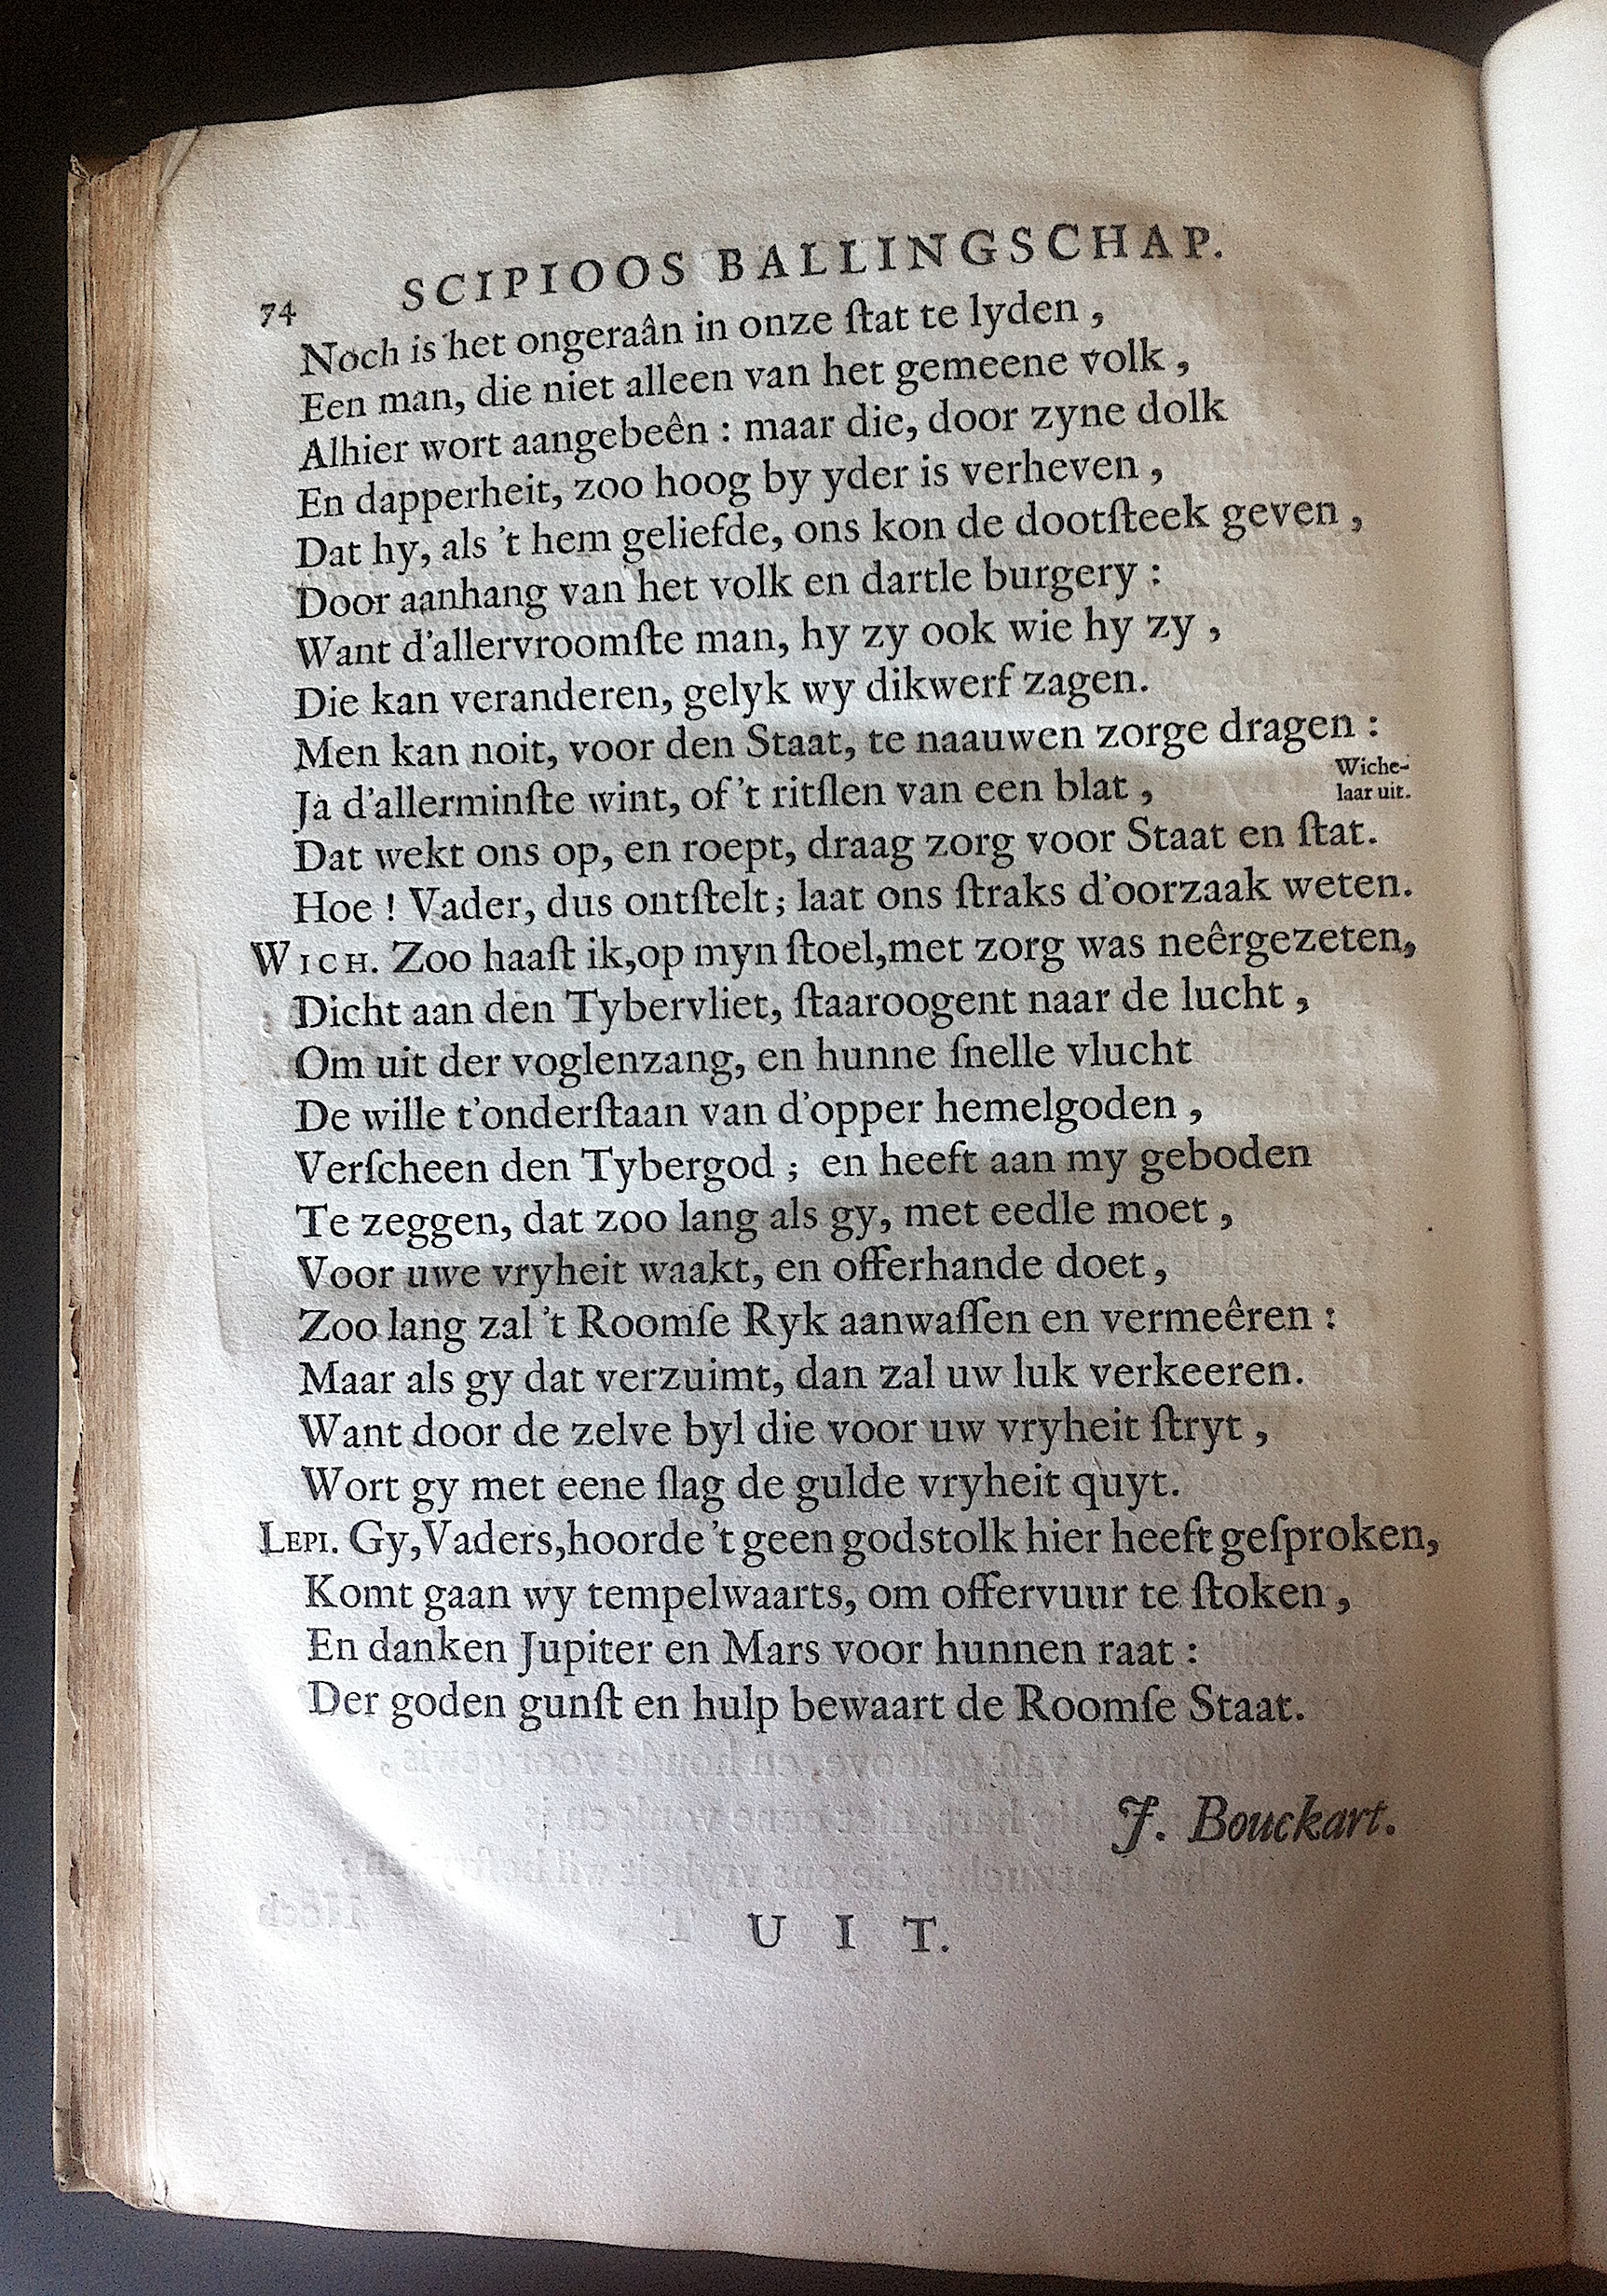 74 SCIPIOOS BALLINGSCHAP.
Noch is het ongeraân in onze ſtat te lyden,
Een man, die niet alleen van het gemeene volk,
Alhier wort aangebeên: maar die, door zyne dolk
En dapperheit, zoo hoog by yder is verheven,
Dat hy, als 't hem geliefde, ons kon de dootſteek geven,
Door aanhang van het volk en dartle burgery:
Want d'allervroomſte man, hy zy ook wie hy zy,
Die kan veranderen, gelyk wy dikwerf zagen.
Men kan noit, voor den Staat, te naauwen zorge dragen:
Ja d'allerminſte wint, of 't ritſlen van een blat,
Wiche-
laar uit.
Dat wekt ons op, en roept, draag zorg voor Staat en ſtat.
Hoe! Vader, dus ontſtelt; laat ons ſtraks d'oorzaak weten.
WICH. Zoo haaſt ik,op myn ſtoel,met zorg was neêrgezeten,
Dicht aan den Tybervliet, ſtaaroogent naar de lucht,
Om uit der voglenzang, en hunne ſnelle vlucht
De wille t'onderſtaan van d'opper hemelgoden,
Verſcheen den Tybergod; en heeft aan my geboden
Te zeggen, dat zoo lang als gy, met eedle moet,
Voor uwe vryheit waakt, en offerhande doet,
Zoo lang zal 't Roomſe Ryk aanwaſſen en vermeêren:
Maar als gy dat verzuimt, dan zal uw luk verkeeren.
Want door de zelve byl die voor uw vryheit ſtryt,
Wort gy met eene ſlag de gulde vryheit quyt.
LEPI. Gy,Vaders,hoorde 't geen godstolk hier heeft geſproken,
Komt gaan wy tempelwaarts, om offervuur te ſtoken,
En danken Jupiter en Mars voor hunnen raat:
Der goden gunſt en hulp bewaart de Roomſe Staat.
J. Bouckart.
UIT.